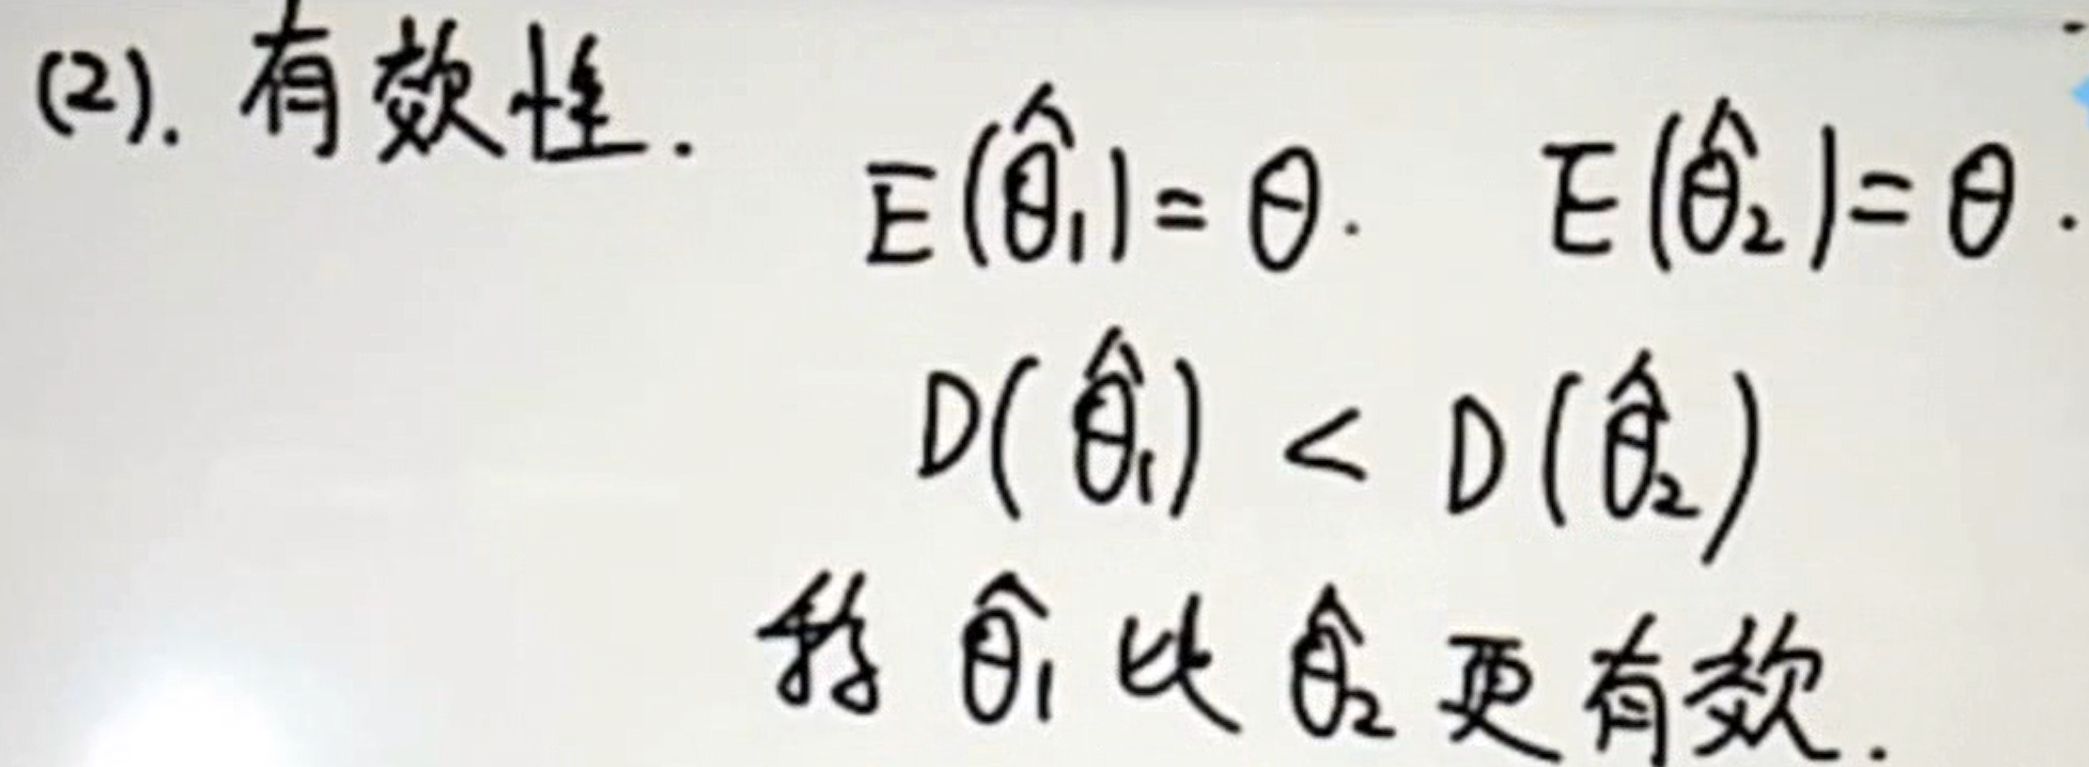 (2). 有效性.
E(θ̂₁)= θ. E(θ̂₂)= θ.
D(θ̂₁) < D(θ̂₂)
称 θ̂₁ 比 θ̂₂ 更有效.